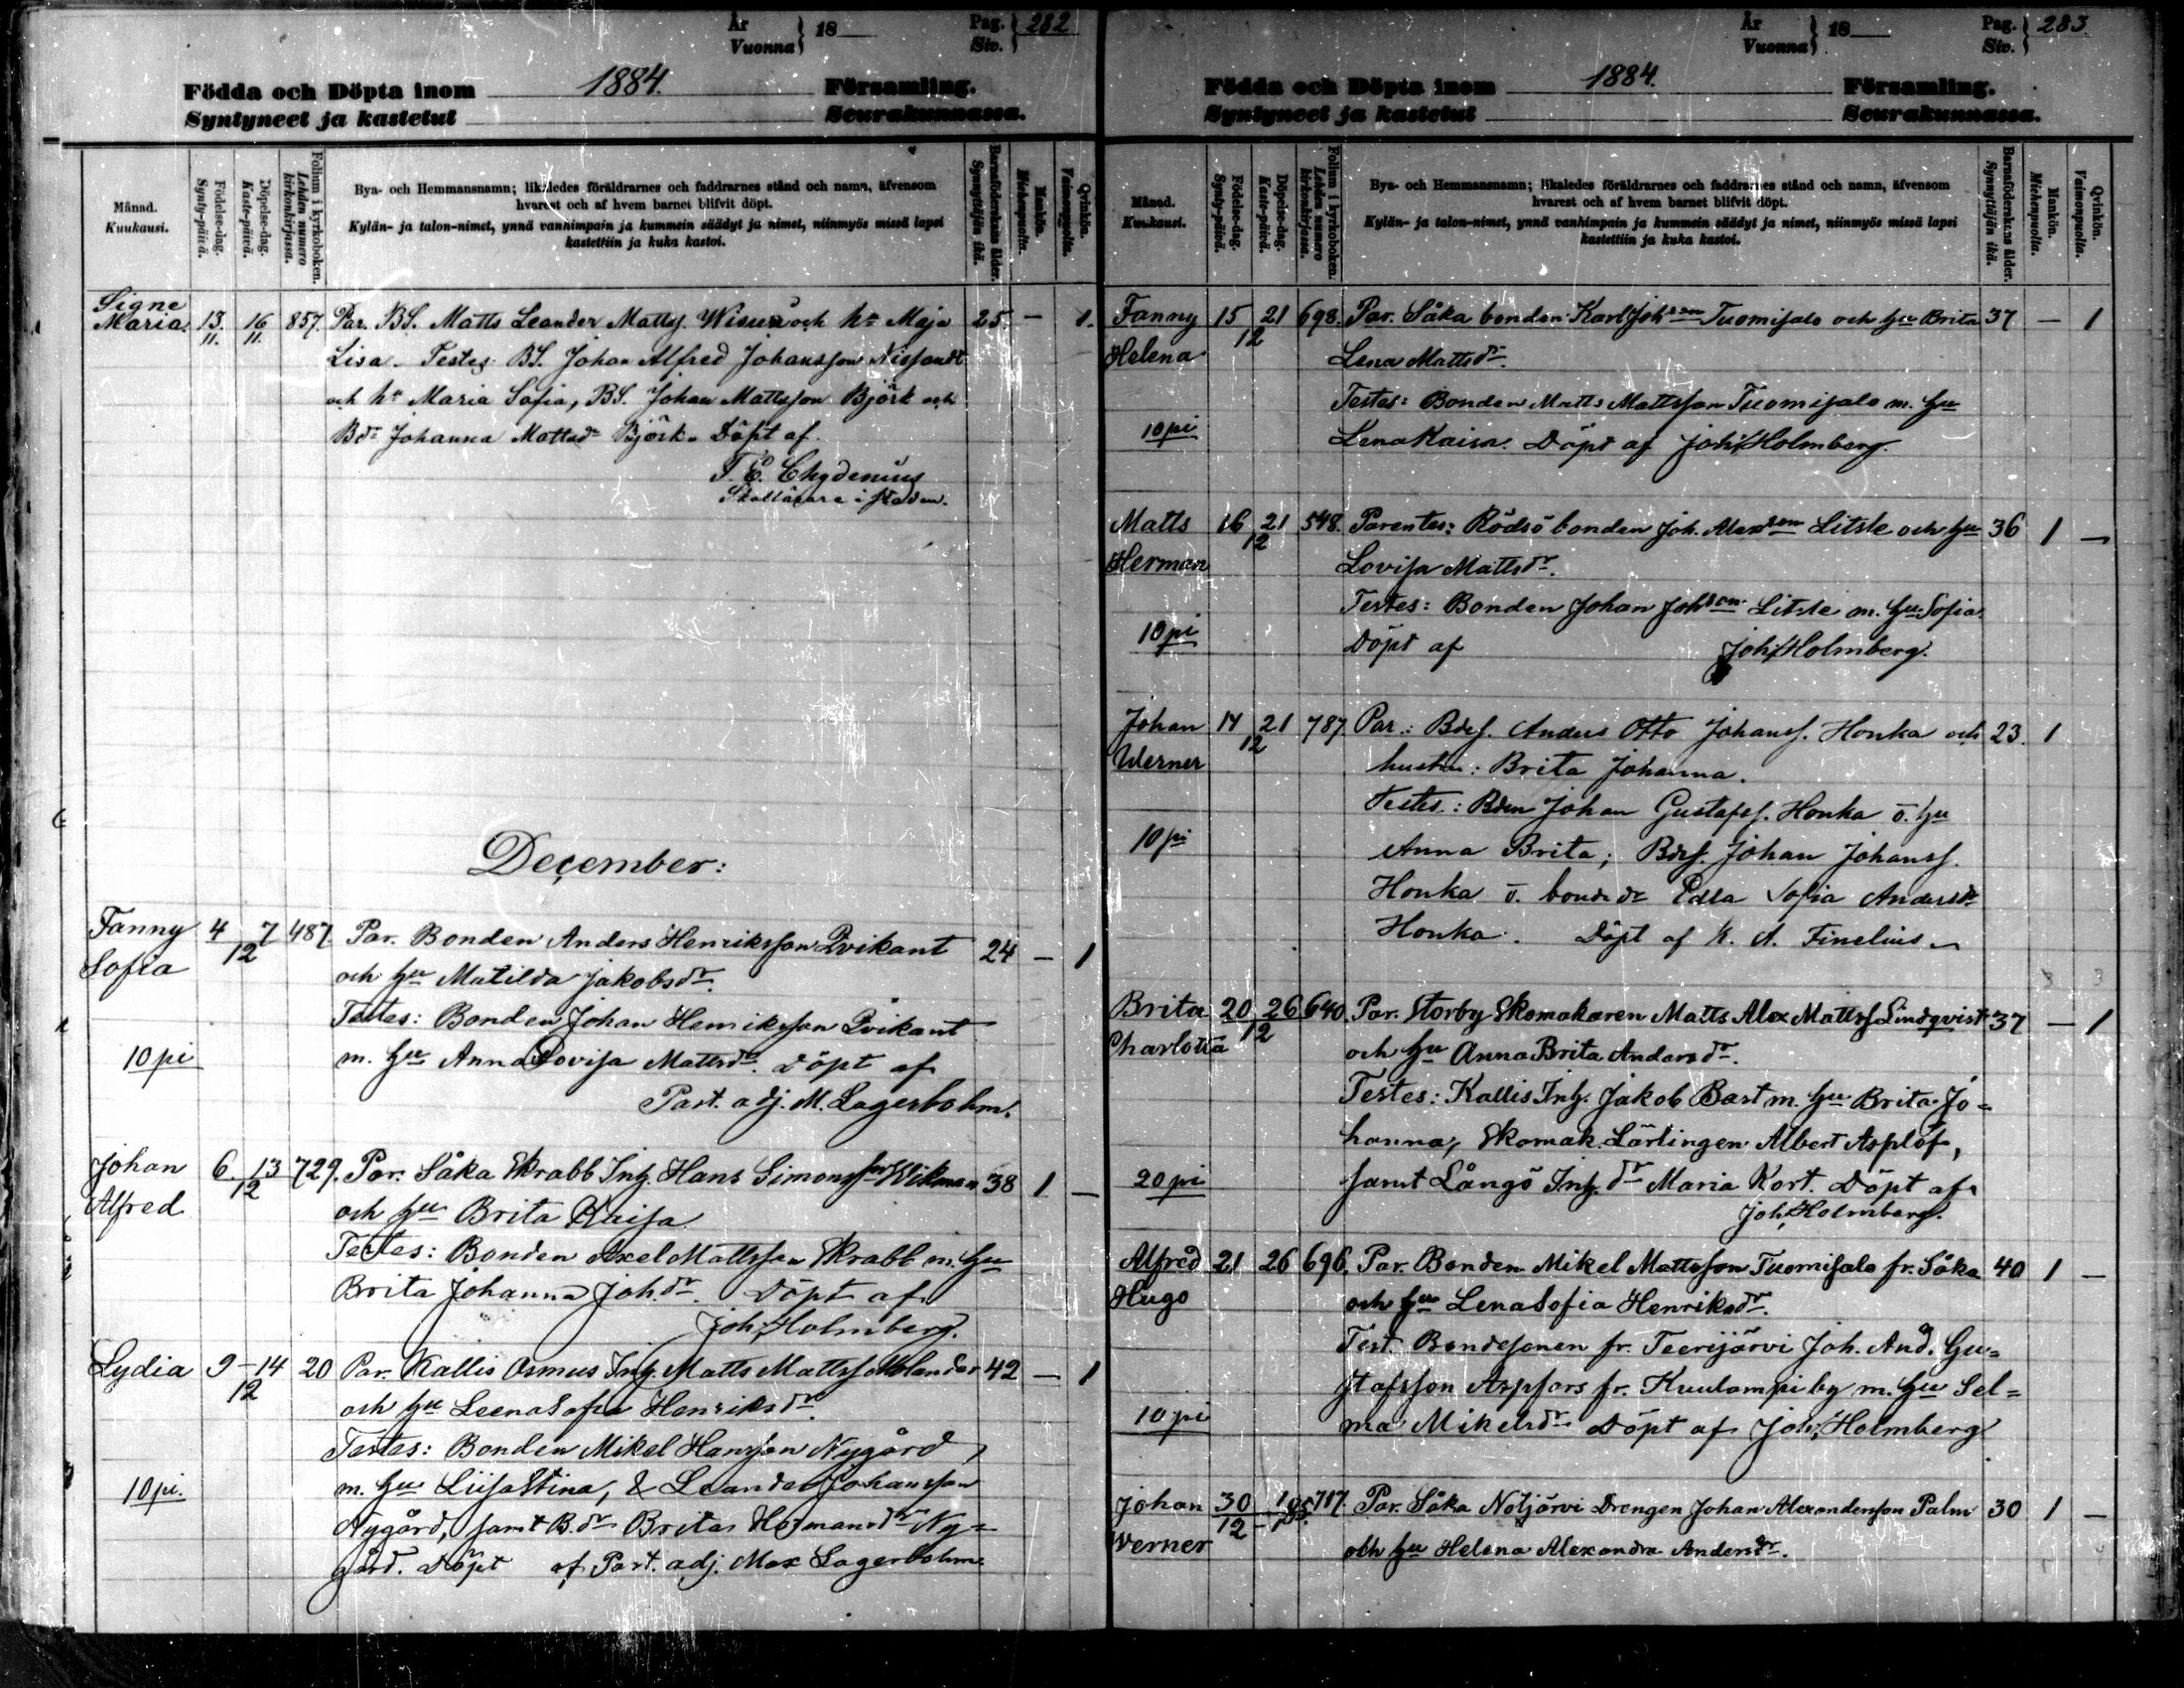 År
Vuonna } 18
Pag.
Siv. } 282
Födda och Döpta inom 1884. Församling.
Syntyneet ja kastetut Seurakunnassa.
Månad.
Kuukausi.
Födelse-dag.
Synty-päivä.
Döpelse-dag.
Kaste-päivä.
Folium i kyrkoboken.
Lehden numero
kirkonkirjassa.
Bya- och Hemmansnamn; likaledes föräldrarnes och faddrarnes stånd och namn, äfvensom
hvarest och af hvem barnet blifvit döpt.
Kylän- ja talon-nimet, ynnä vanhimpain ja kummein säädyt ja nimet, niinmyös missä lapsi
kastettiin ja kuka kastoi.
Barnaföderskans ålder.
Synnyttäjän ikä.
Mankön.
Miehenpuolta.
Qvinkön.
Vaimonpuolta.
Signe
Maria. 13. 16 857. Par. BS. Matts Leander Mattss. och hu Maja 25. — 1.
11. 11.
Lisa – Testes BS. Johan Alfred Johansson
och hu Maria Sofia, BS. Johan Mattsson Björk och
Bdr Johanna Mattsdr Björk. Döpt af
T. E. Chydenius
Skollärare i staden.
December:
Fanny 4 7 487. Par. Bonden Anders Henriksson Qvikant 24 — 1
Sofia 12 och hu Matilda Jakobsdr.
Testes: Bonden Johan Henriksson Qvikant
10 pi m. hu Anna Lovisa Mattsdr. Döpt af
Past. adj. M. Lagerbohm.
Johan 6. 13 729. Par. Såka Skrabb Inh. Hans Simonsson Wikman 38 1 —
12
Alfred och hu Brita Kaisa
Testes: Bonden Axel Mattsson Skrabb m. hu
Brita Johanna Joh.dr. Döpt af
Joh. Holmberg.
Lydia 9 – 14 20 Par. Kallis Asmus Inh. Matts Mattss. 42 — 1
12
och hu Leena Sofia Henriksdr.
Testes: Bonden Mikel Hansson Nygård,
10 pi. m. hu Liisa Stina, & Leander Johansson
Nygård, samt B.dr Brita Hermansdr Ny=
gård. Döpt af Past. adj. Max Lagerbohm.
År
Vuonna } 18
Pag.
Siv. } 283.
Födda och Döpta inom 1884. Församling.
Syntyneet ja kastetut Seurakunnassa.
Månad.
Kuukausi.
Födelse-dag.
Synty-päivä.
Döpelse-dag.
Kaste-päivä.
Folium i kyrkoboken.
Lehden numero
kirkonkirjassa.
Bya- och Hemmansnamn; likaledes föräldrarnes och faddrarnes stånd och namn, äfvensom
hvarest och af hvem barnet blifvit döpt.
Kylän- ja talon-nimet, ynnä vanhimpain ja kummein säädyt ja nimet, niinmyös missä lapsi
kastettiin ja kuka kastoi.
Barnaföderskans ålder.
Synnyttäjän ikä.
Mankön.
Miehenpuolta.
Qvinkön.
Vaimonpuolta.
Fanny 15 21 698. Par. Såka bonden Karl Johson Tuomisalo och hu Brita 37 — 1
12
Helena Lena Mattsdr.
Testes: Bonden Matts Mattsson Tuomisalo m. hu
10 pi Lena Kaisa. Döpt af Joh. Holmberg.
Matts 16 21 548. Parentes: Rödsö bonden Joh. Alexson Litsle och hu 36 1 —
12
Herman Lovisa Mattsdr.
Testes: Bonden Johan Johson Litsle m. hu Sofia.
10 pi Döpt af Joh. Holmberg.
Johan 17 21 787 Par.: Bdes. Anders Otto Johanss. Honka och 23. 1
12
Werner hustru: Brita Johanna.
Testes.: Bden Johan Gustafss. Honka o. hu
10 pi Anna Brita; Bdes. Johan Johanss.
Honka o. bondedr Edla Sofia Andersdr.
Honka. Döpt af K. A. Finelius.
3 3
Brita 20 26 640. Par. Storby Skomakaren Matts Alex Mattss. Lindqvist 37 — 1
12
Charlotta och hu Anna Brita Andersdr.
Testes: Kallis Inh. Jakob Bast m. hu Brita Jo=
hanna, Skomak. Lärlingen Albert Asplöf,
20 pi samt Långö Inh. dr Maria Kort. Döpt af
Joh. Holmberg.
Alfred 21 26 696. Par. Bonden Mikel Mattsson Tuomisalo fr. Såka 40 1 —
Hugo och hu Lena Sofia Henriksdr.
Test. Bondesonen fr. Teerijärvi Joh. And. Gu=
stafsson Aspfors fr. Huulampi by m. hu Sel=
10 pi ma Mikelsdr. Döpt af Joh. Holmberg
Johan 30 1 85. 717. Par. Såka Nötjärvi Drengen Johan Alexandersson Palm 30 1 —
12 1
Verner och hu Helena Alexandra Andersdr.